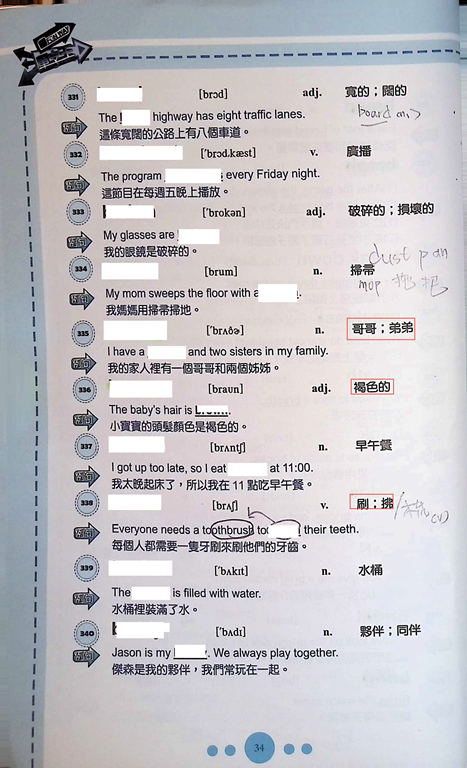 331 [brɔd] adj. 寬的；闊的
The highway has eight traffic lanes.
例句
這條寬闊的公路上有八個車道。
board n.
332 [ˈbrɔd.kæst] v. 廣播
The program every Friday night.
例句
這節目在每週五晚上播放。
333 [ˈbrokən] adj. 破碎的；損壞的
My glasses are
例句
我的眼鏡是破碎的。
dust pan
334 [brum] n. 掃帚
mop 拖把
My mom sweeps the floor with a .
例句
我媽媽用掃帚掃地。
335 [ˈbrʌðɚ] n. 哥哥；弟弟
I have a and two sisters in my family.
例句
我的家人裡有一個哥哥和兩個姊姊。
336 [braun] adj. 褐色的
The baby's hair is .
例句
小寶寶的頭髮顏色是褐色的。
337 [brʌntʃ] n. 早午餐
I got up too late, so I eat at 11:00.
例句
我太晚起床了，所以我在 11 點吃早午餐。
338 [brʌʃ] v. 刷；擦
Everyone needs a toothbrush to their teeth.
例句
每個人都需要一隻牙刷來刷他們的牙齒。
339 [ˈbʌkɪt] n. 水桶
The is filled with water.
例句
水桶裡裝滿了水。
340 [ˈbʌdɪ] n. 夥伴；同伴
Jason is my . We always play together.
例句
傑森是我的夥伴，我們常玩在一起。
34